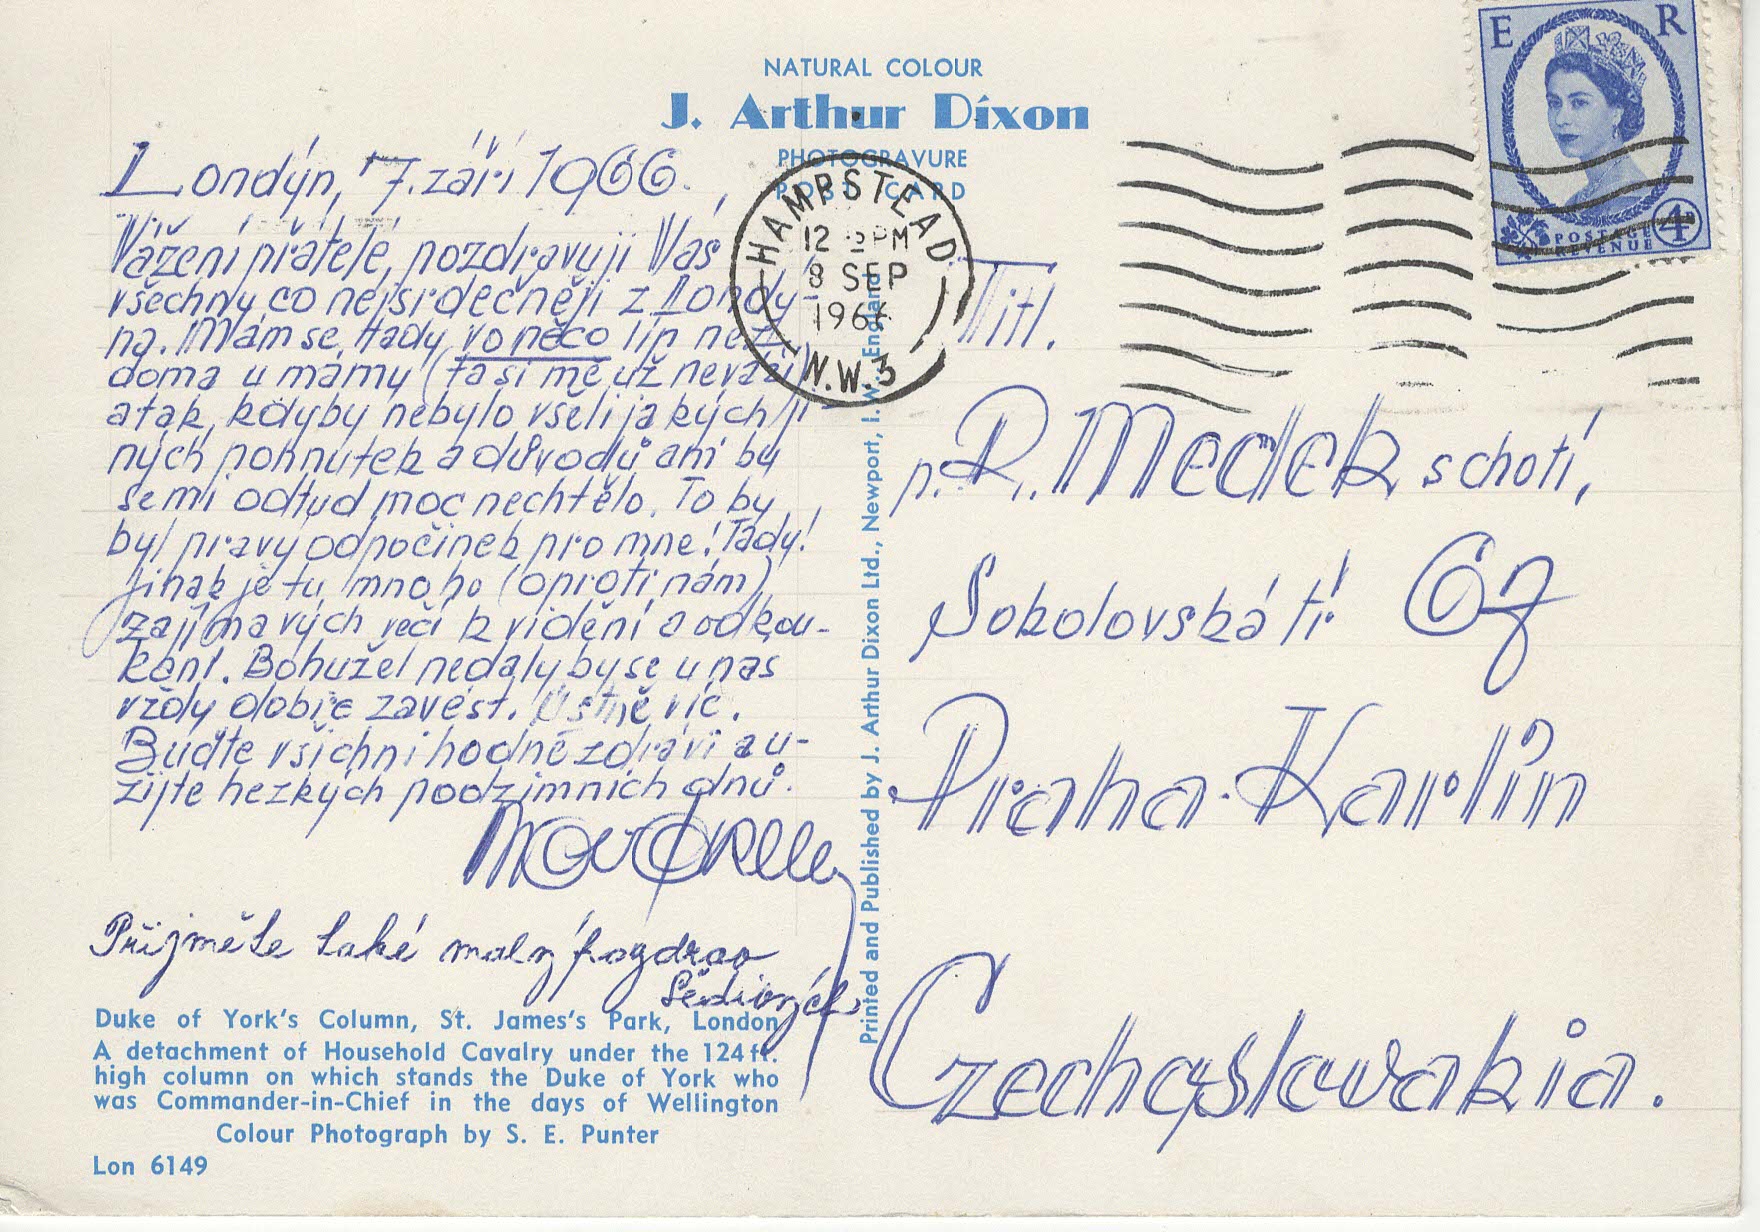 NATURAL COLOUR
J. Arthur Dixon
PHOTOGRAVURE
POST CARD
E R
POSTAGE
REVENUE
4D
HAMPSTEAD
12 PM
8 SEP
1966
N.W.3
Londýn, 7. září 1966.
Vážení přátelé, pozdravuji Vás
všechny co nejsrdečněji z Londý-
na. Mám se tady vo něco líp než
doma u mámy (ta si mě už nevzala)
a tak, kdyby nebylo všelijakých ji-
ných pohnutek a důvodů ani by
se mi odtud moc nechtělo. To by
byl pravý odpočinek pro mne! Tady!
Jinak je tu mnoho (oproti nám)
zajímavých věcí k vidění a odkou-
kání. Bohužel nedaly by se u nás
vždy dobře zavést. Ústně víc.
Buďte všichni hodně zdrávi a u-
žijte hezkých podzimních dnů.
Přijměte také malý pozdrav
Titl.
p. R. Medek s chotí,
Sokolovská tř. 69
Praha-Karlín
Czechoslovakia.
Printed and Published by J. Arthur Dixon Ltd., Newport, I. W., England
Duke of York's Column, St. James's Park, London
A detachment of Household Cavalry under the 124 ft.
high column on which stands the Duke of York who
was Commander-in-Chief in the days of Wellington
Colour Photograph by S. E. Punter
Lon 6149